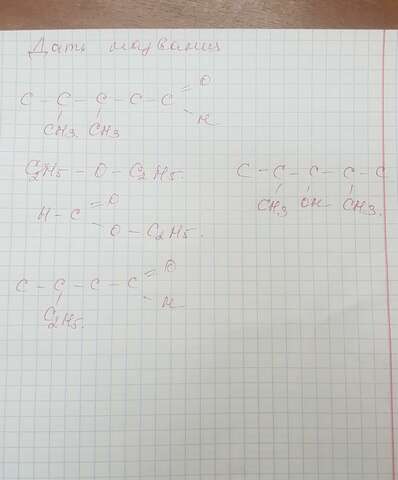 Дать названия
C - C - C - C - C = O
- H
CH3 CH3
C2H5 - O - C2H5.
C - C - C - C - C
CH3 OH CH3.
H - C = O
- O - C2H5.
C - C - C - C = O
- H
C2H5.